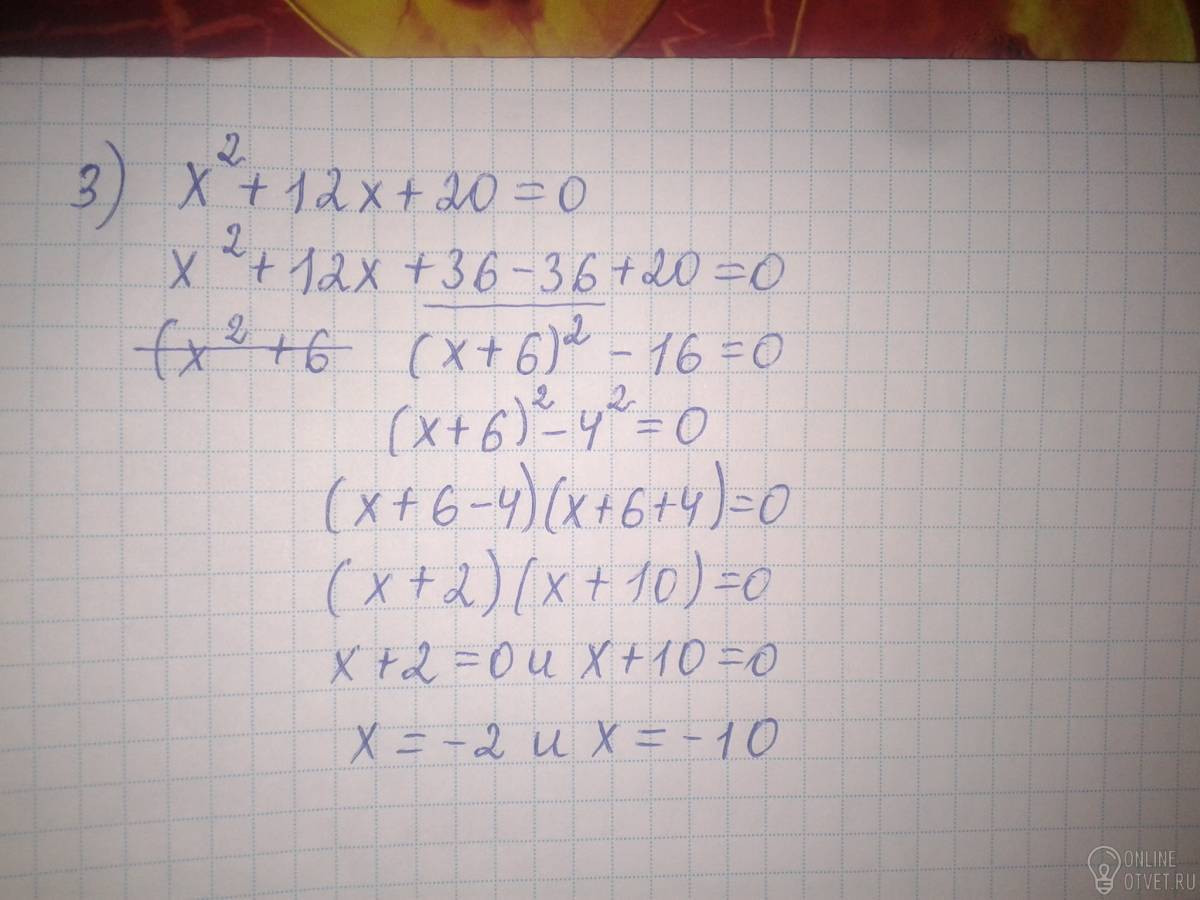 3) x² + 12x + 20 = 0
x² + 12x + 36 - 36 + 20 = 0
(x² + 6 (x + 6)² - 16 = 0
(x + 6)² - 4² = 0
(x + 6 - 4)(x + 6 + 4) = 0
(x + 2)(x + 10) = 0
x + 2 = 0 и x + 10 = 0
x = -2 и x = -10
ONLINE
OTVET.RU